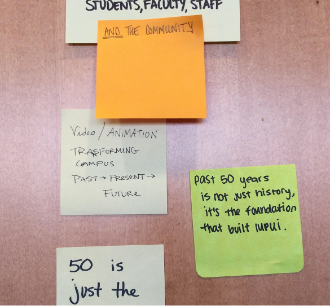 STUDENTS, FACULTY, STAFF
AND THE COMMUNITY
Video / ANIMATION
TRASFORMING
CAMPUS
PAST → PRESENT →
FUTURE
Past 50 years
is not just history,
it's the foundation
that built IUPUI.
50 is
just the